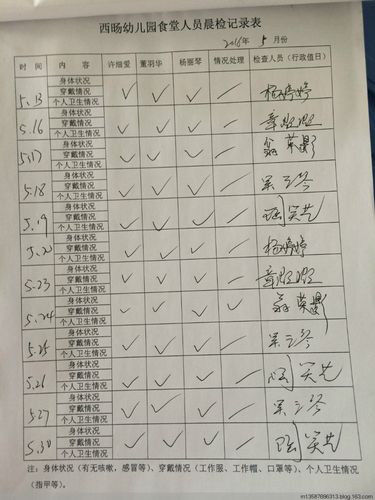 西旸幼儿园食堂人员晨检记录表
2016年 5月份
时间 内容 许细爱 董羽华 杨丽琴 情况处理 检查人员（行政值日）
身体状况
5.13 穿戴情况 ✓ ✓ ✓ — 杨婷婷
个人卫生情况
身体状况
5.16 穿戴情况 ✓ ✓ ✓ —
个人卫生情况
身体状况
5.17 穿戴情况 ✓ ✓ ✓ — 翁荣影
个人卫生情况
身体状况
5.18 穿戴情况 ✓ ✓ ✓ —
个人卫生情况
身体状况
5.19 穿戴情况 ✓ ✓ ✓ —
个人卫生情况
身体状况
5.20 穿戴情况 ✓ ✓ ✓ 杨婷婷
个人卫生情况
身体状况
5.23 穿戴情况 ✓ ✓ ✓ —
个人卫生情况
身体状况
5.24 穿戴情况 ✓ ✓ ✓ ✓ 翁荣影
个人卫生情况
身体状况
5.25 穿戴情况 ✓ ✓ ✓ —
个人卫生情况
身体状况
5.26 穿戴情况 ✓ ✓ ✓ —
个人卫生情况
身体状况
5.27 穿戴情况 ✓ ✓ ✓ —
个人卫生情况
身体状况
5.30 穿戴情况 ✓ ✓ ✓ —
个人卫生情况
注：身体状况（有无咳嗽，感冒等）、穿戴情况（工作服、工作帽、口罩等）、个人卫生情况
（指甲等）。
m13587896313.blog.163.com